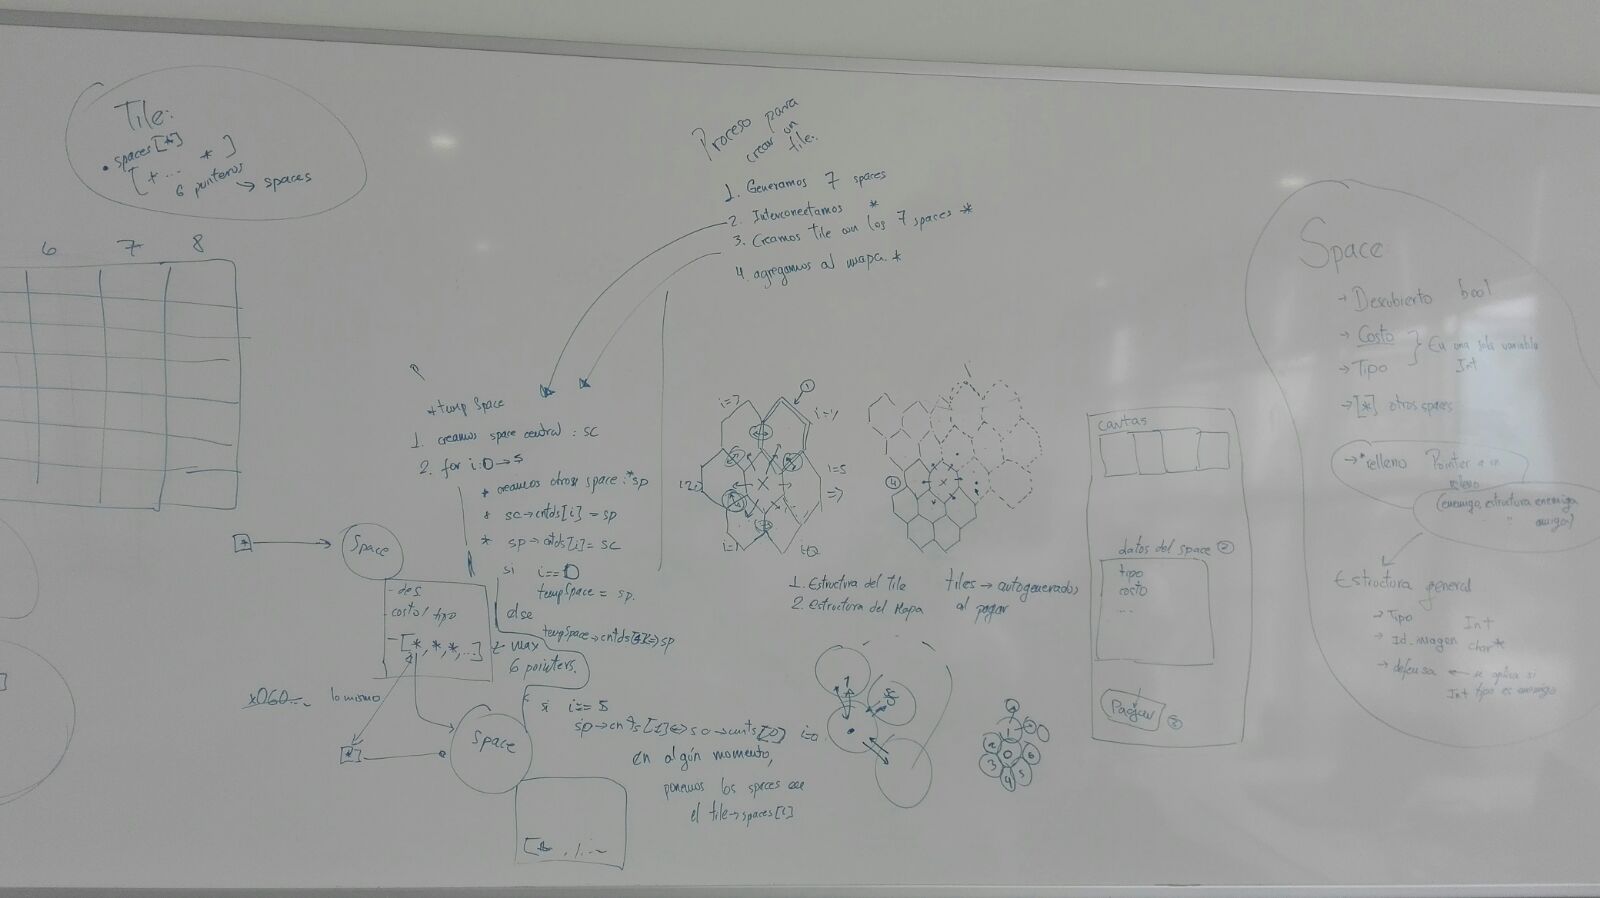 Tile:
• spaces[*]
[* ... *]
6 punteros → spaces
6 7 8
Proceso para
crear un
tile.
1. Generamos 7 spaces
2. Interconectamos *
3. Creamos tile con los 7 spaces *
4. agregamos al mapa. *
*temp Space
1. creamos space central : sc
2. for i:0→5
* creamos otros space: *sp
* sc→cntds[i] = sp
* sp→cntds[i] = sc
si i==0
tempSpace = sp.
else
max
6 pointers.
si i== 5
en algún momento,
ponemos los spaces en
el tile→spaces[i]
[*]
Space
- des
- costo/tipo
- [*,*,*,...]
lo mismo
[*]
Space
1
i=5
=>
4
1. Estructura del Tile
2. estructura del Mapa
tiles → autogenerados
al pagar
i=0
1
2
3
4
5
6
0
cartas
datos del space ②
tipo
costo
...
Pagar ③
Space
→ Descubierto bool
→ Costo
→ Tipo
} En una sola variable
Int
→ [*] otros spaces
→ *relleno Pointer a un
relleno
(enemigo, estructura enemiga
" " amiga)
Estructura general
→ Tipo Int
→ Id_imagen char*
→ defensa ← se aplica si
Int tipo es enemigo